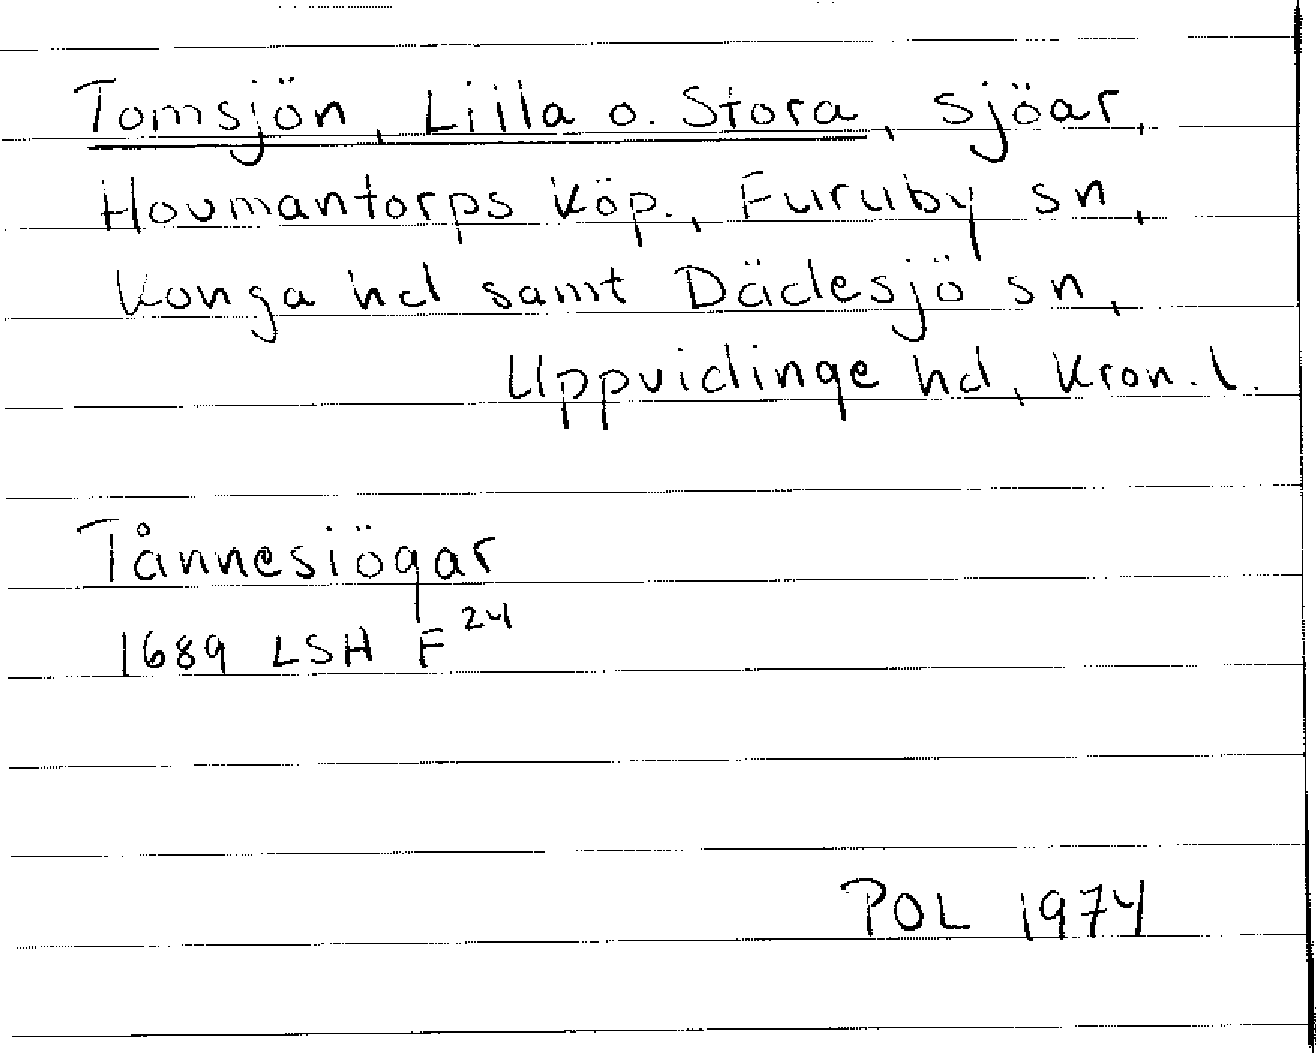 Tomsjön, Lilla o. Stora, sjöar,
Hovmantorps köp., Furuby sn,
Konga hd samt Dädesjö sn,
Uppvidinge hd, Kron. l.
Tånnesiögar
1689 LSH F 24
POL 1974